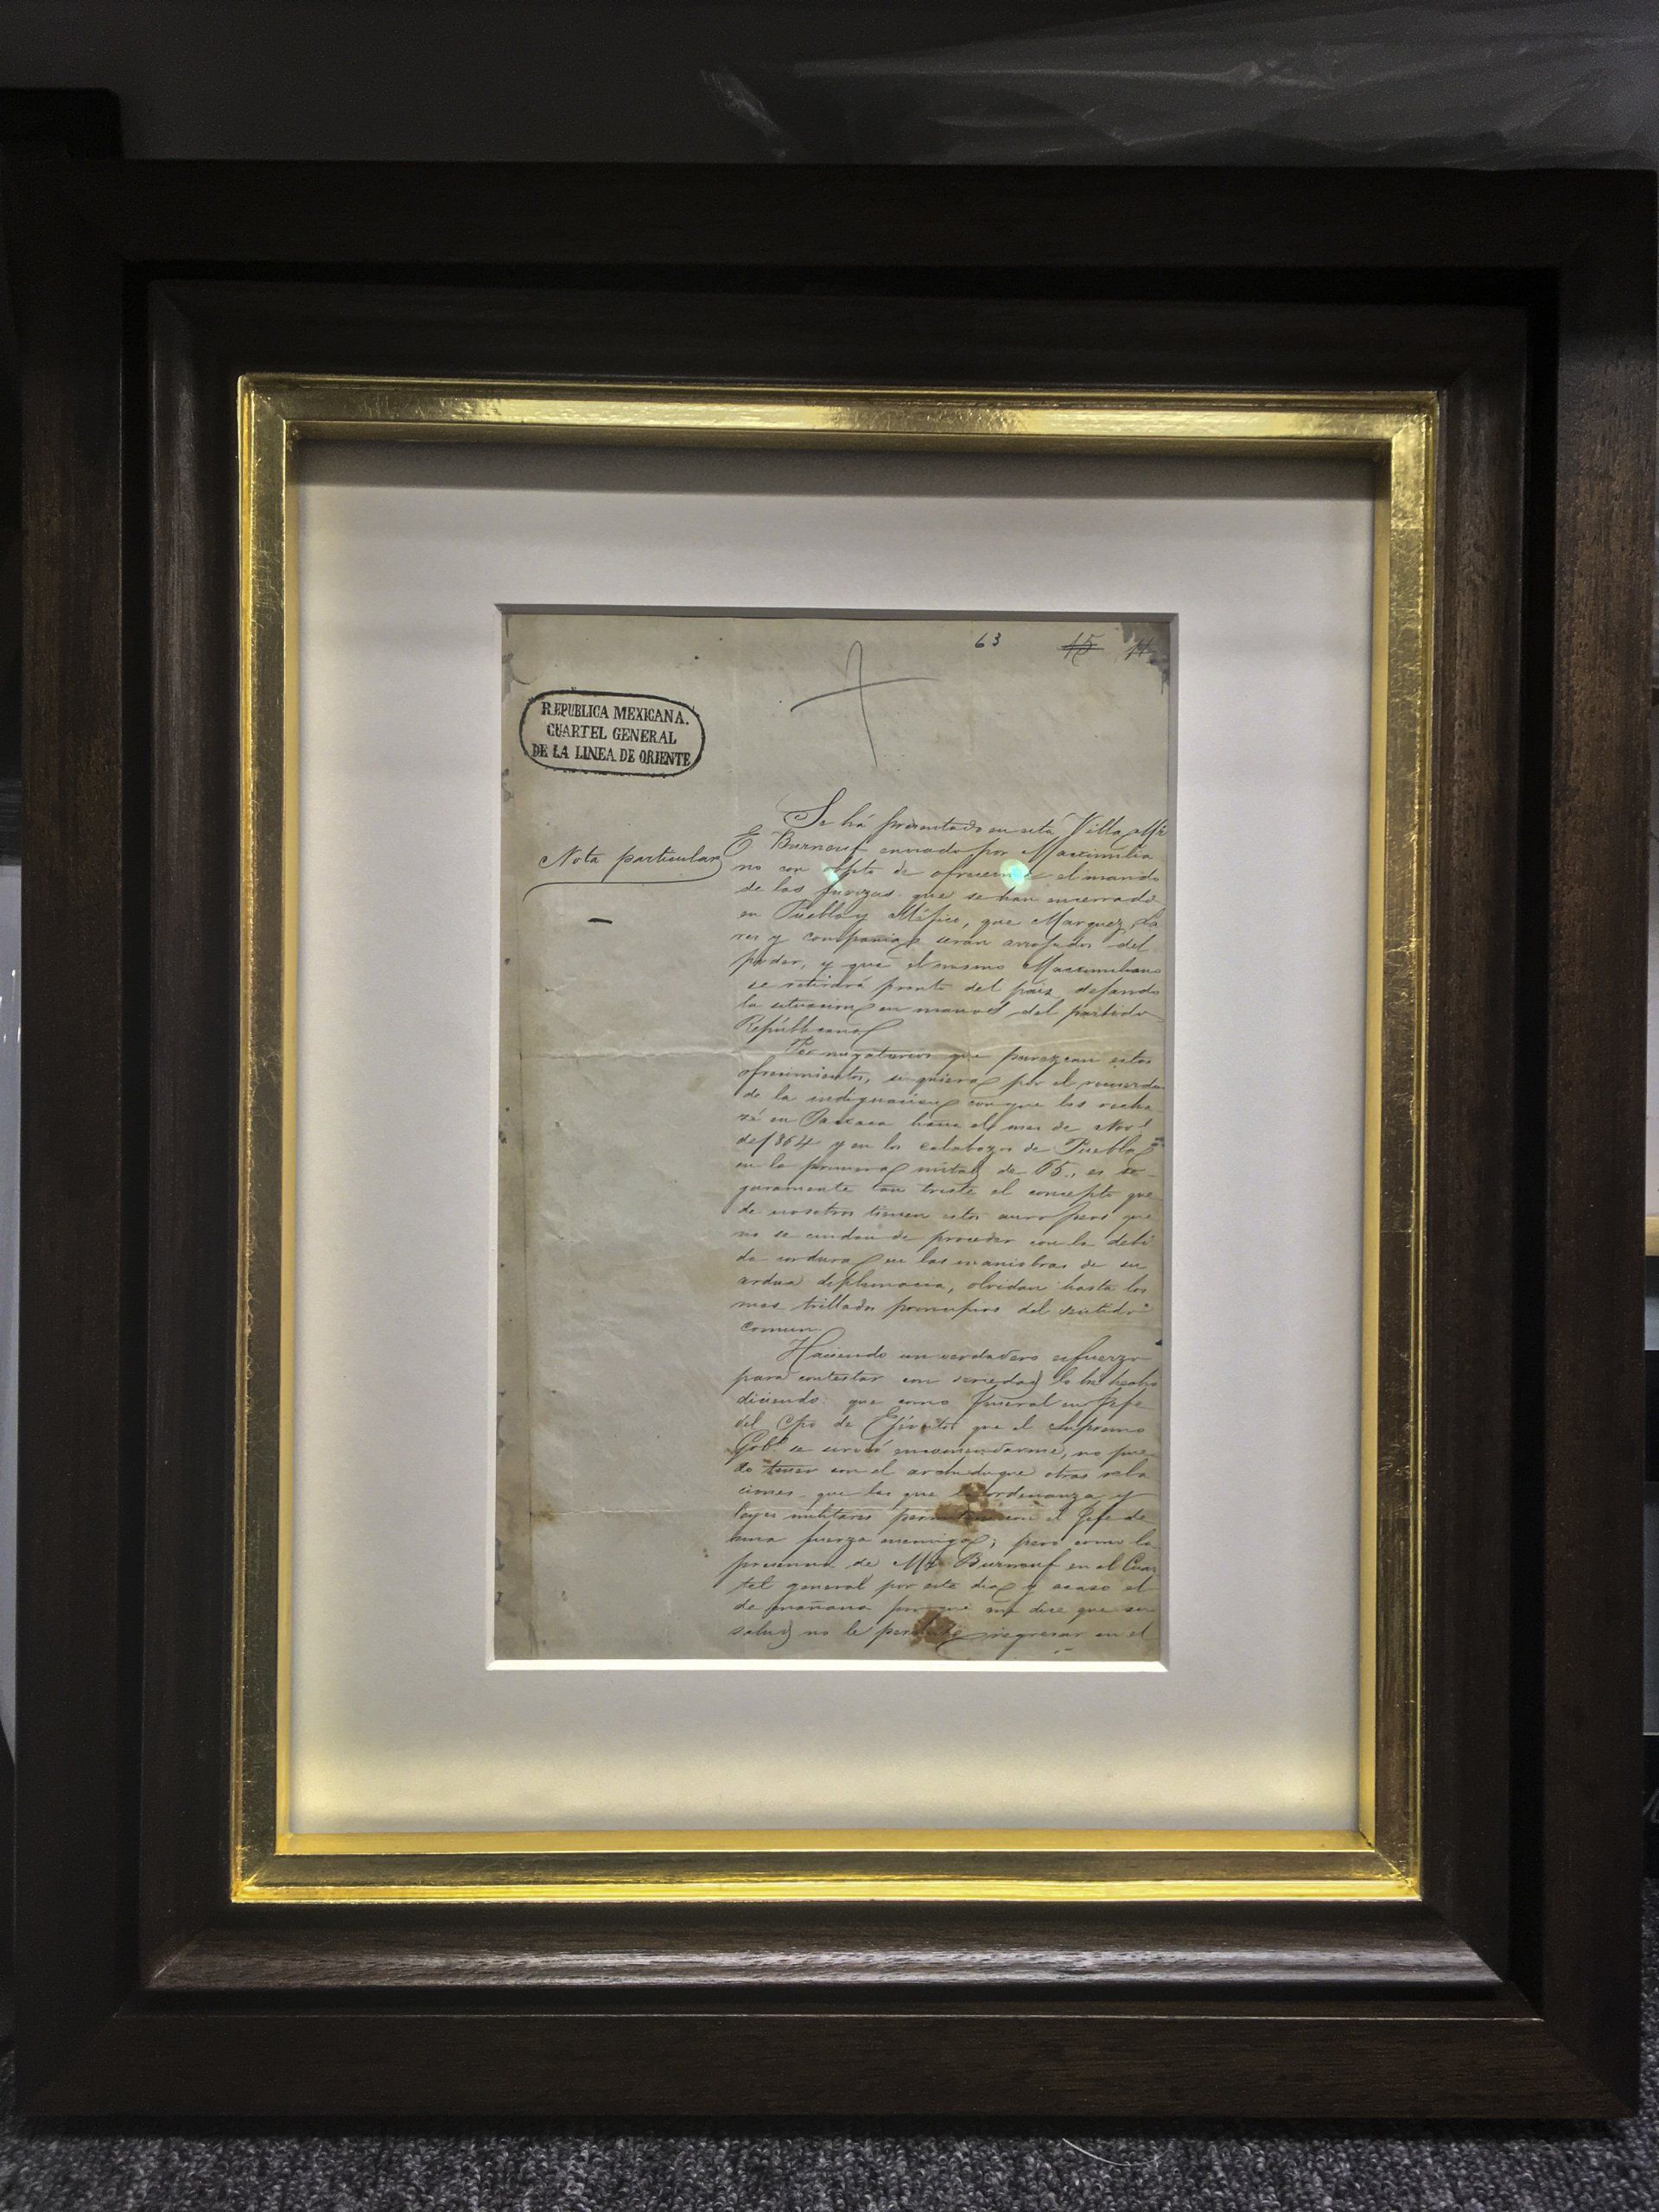 63 15 11
REPUBLICA MEXICANA.
CUARTEL GENERAL
DE LA LINEA DE ORIENTE
Nota particular
Se há presentado en esta Villa Mr
E. Burnouf enviado por Maximilia
no con objto de ofrecerme el mando
de las fuerzas que se han encerrado
en Puebla y Méjico, que Marquez, La
res y compañia serán arrojados del
poder, y que el mismo Maximiliano
se retirará pronto del pais, dejando
la situacion en manos del partido
Republicano
Por negatorios que parezcan estos
ofrecimientos, siquiera por el recuerdo
de la indignacion con que los recha
zé en Oaxaca hacia el mes de Nove
de 1864 y en los calabozos de Puebla
en la primera mitad de 65., es se-
guramente tan triste el concepto que
de nosotros tienen estos europeos que
no se cuidan de proceder con la debi
da cordura en las maniobras de su
ardua diplomacia, olvidan hasta los
mas trillados principios del sentido
comun.
Haciendo un verdadero esfuerzo
para contestar con seriedad lo he hecho
diciendo: que como General en Jefe
del Cpo de Ejército que el Supremo
Gobo se sirvió encomendarme, no pue-
do tener con el archiduque otras rela
ciones que las que la ordenanza y
leyes militares permiten con el Jefe de
una fuerza enemiga; pero como la
presencia de Mr Burnouf en el Cuar
tel general por este dia y acaso el
de mañana porque me dice que su
salud no le permite regresar en el